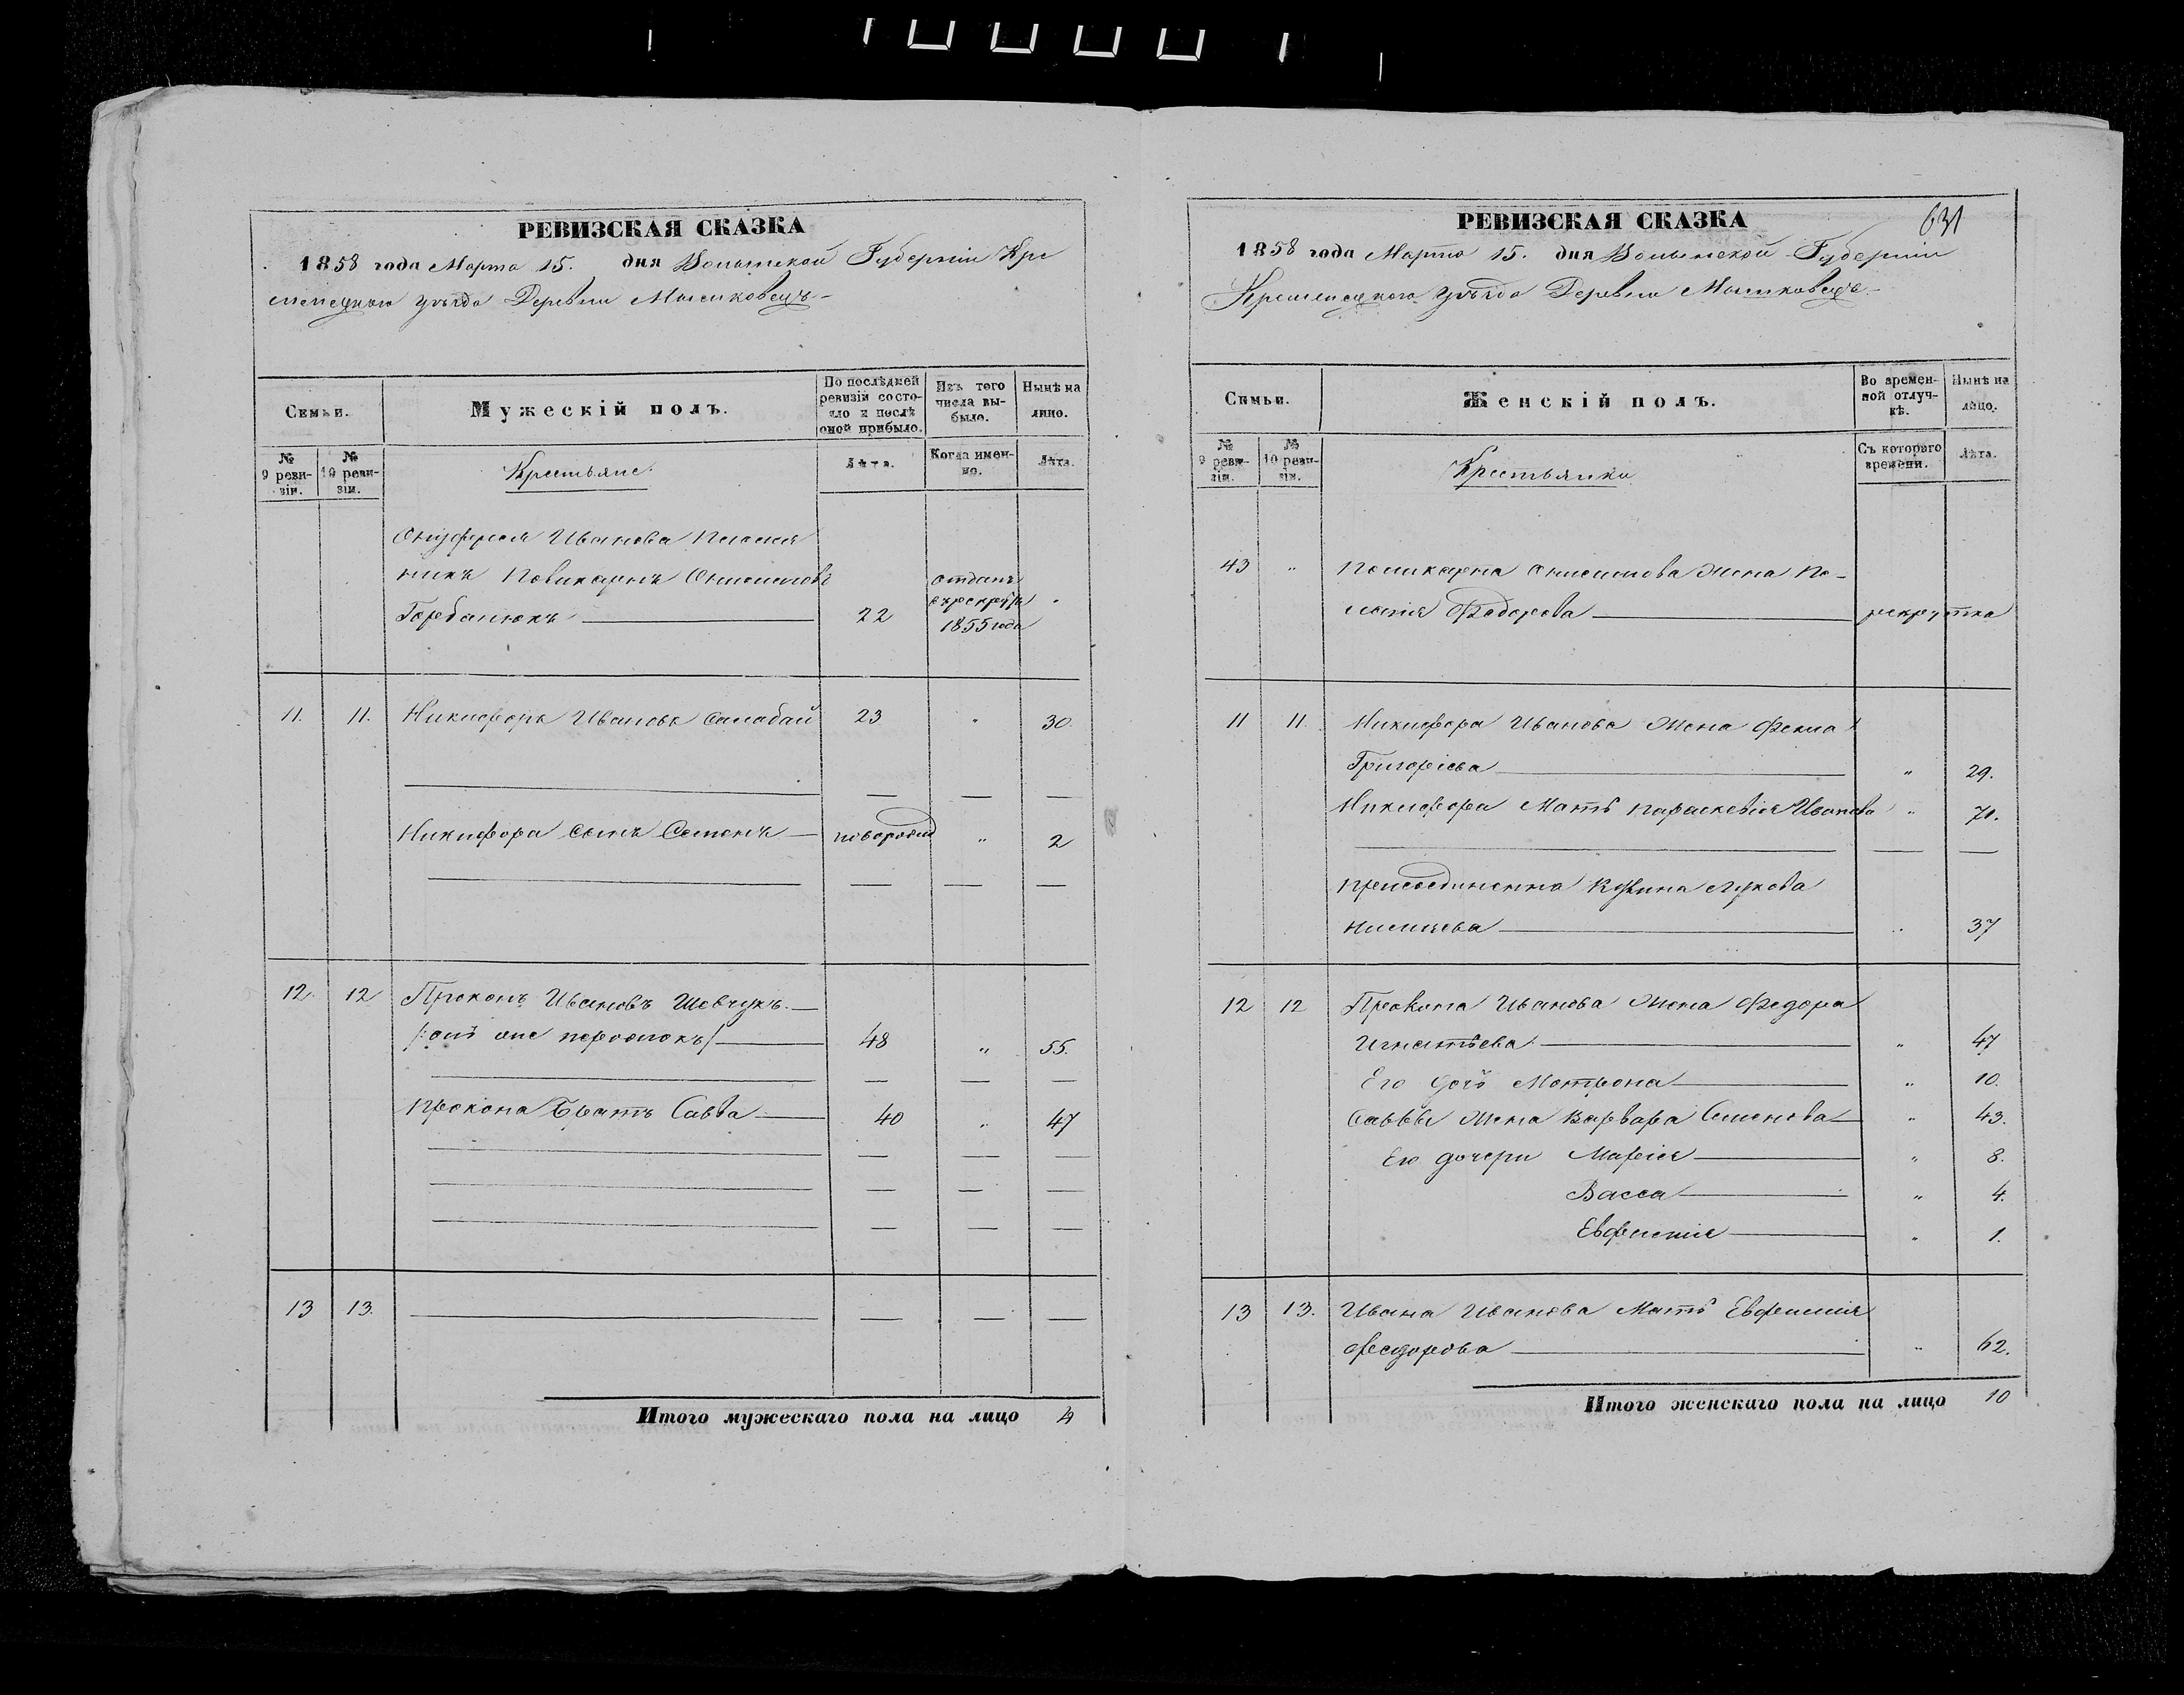 РЕВИЗСКАЯ СКАЗКА
1858 года Марта 15. дня Волынской Губерніи Кре
менецкаго уѣзда Деревни Мышковецъ
Семьи.
Мужескій полъ.
По послѣдней ревизіи состояло и послѣ оной прибыло.
Изъ того числа выбыло.
Нынѣ на лицо.
№ 9 ревизіи.
№ 10 ревизіи.
Крестьяне.
Лѣта.
Когда именно.
Лѣта.
Онуфрія Иванова племян
никъ Поликарпъ Онисимовъ
Горбатюкъ 22 отданъ в рекруты 1855 года
11. 11. Никифоръ Ивановъ Салабай 23 " 30.
Никифора сынъ Семенъ новорожд " 2
12. 12 Прокопъ Ивановъ Шевчукъ.
/:онъ же 48 " 55.
Прокопа братъ Савва 40 " 47
13 13.
Итого мужескаго пола на лицо 4
РЕВИЗСКАЯ СКАЗКА
631
1858 года Марта 15. дня Волынской Губерніи
Кременецкаго уѣзда Деревни Мышковецъ
Семьи.
Женскій полъ.
Во временной отлучкѣ.
Нынѣ на лицо.
№ 9 ревизіи.
№ 10 ревизіи.
Крестьянки
Съ котораго времени.
Лѣта.
43 " Поликарпа Онисимова жена Пе-
лагія Федорова рекрутка
11 11. Никифора Иванова жена Фекла
Григоріева " 29.
Никифора Мать Параскевія Иванова " 70.
присоединенна Лукова
37
12 12 Прокопа Иванова жена Федора
Игнатьева " 47
Его дочь Мотрона " 10.
Саввы жена Варвара Семенова " 43.
Его дочери Марія " 8.
Васса " 4.
Евфимія " 1.
13 13. Ивана Иванова Мать Евфимія
Феодорова " 62.
Итого женскаго пола на лицо 10